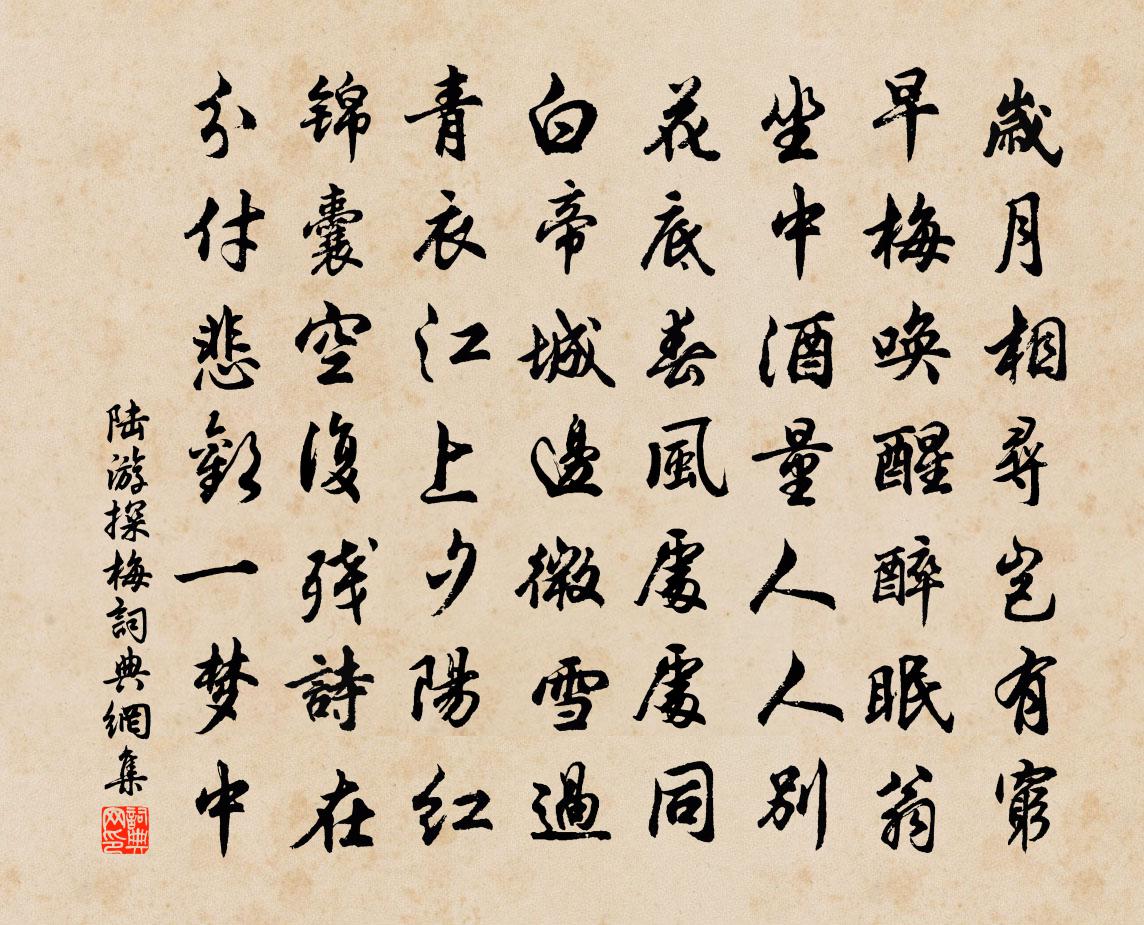 歲月相尋岂有窮
早梅唤醒醉眠翁
坐中酒量人人別
花底春風處處同
白帝城邊微雪過
青衣江上夕陽紅
锦囊空復残詩在
分付悲歡一梦中
陆游探梅詞典網集
詞典网印